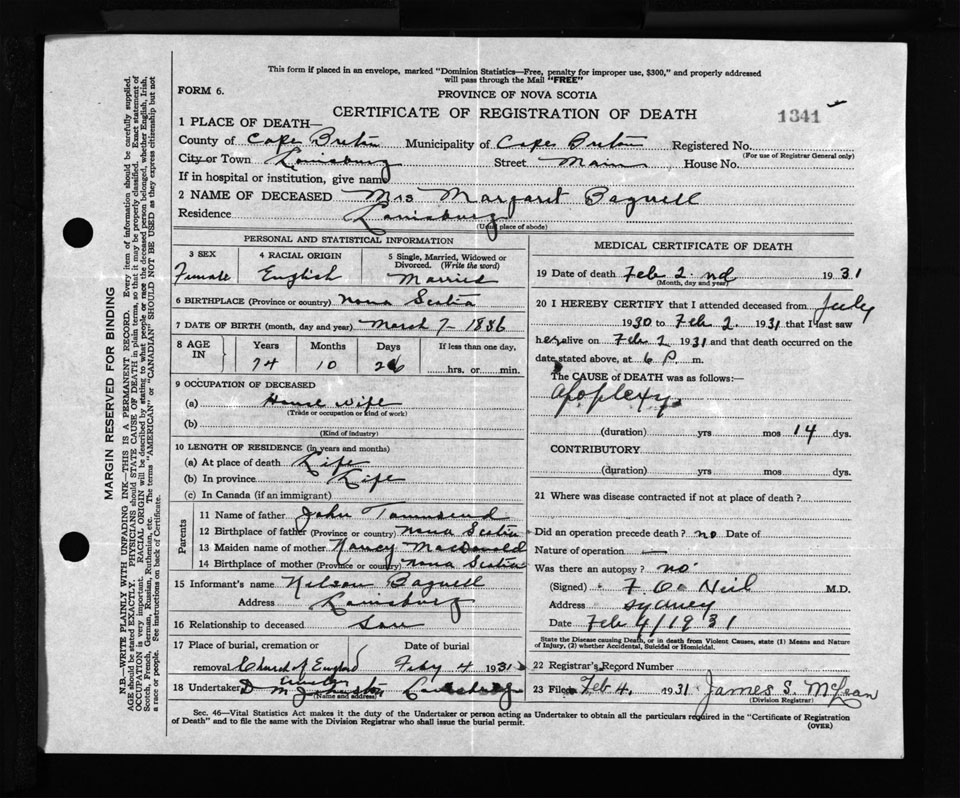 This form if placed in an envelope, marked "Dominion Statistics—Free, penalty for improper use, $300," and properly addressed
will pass through the Mail "FREE"
FORM 6.
PROVINCE OF NOVA SCOTIA
CERTIFICATE OF REGISTRATION OF DEATH
1341
1 PLACE OF DEATH—
County of Cape Breton Municipality of Cape Breton Registered No.
(For use of Registrar General only)
City or Town Louisburg Street Main House No.
If in hospital or institution, give name
2 NAME OF DECEASED Mrs Margaret Bagnell
Residence Louisburg
(Usual place of abode)
PERSONAL AND STATISTICAL INFORMATION
3 SEX 4 RACIAL ORIGIN 5 Single, Married, Widowed or
Divorced. (Write the word)
Female English Married
6 BIRTHPLACE (Province or country) Nova Scotia
7 DATE OF BIRTH (month, day and year) March 7 - 1856
8 AGE IN Years Months Days If less than one day,
74 10 26 hrs. or min.
9 OCCUPATION OF DECEASED
(a) House wife
(Trade or occupation or kind of work)
(b)
(Kind of industry)
10 LENGTH OF RESIDENCE (in years and months)
(a) At place of death Life
(b) In province Life
(c) In Canada (if an immigrant)
Parents
11 Name of father John Townsend
12 Birthplace of father (Province or country) Nova Scotia
13 Maiden name of mother Nancy MacDonald
14 Birthplace of mother (Province or country) Nova Scotia
15 Informant's name Nelson Bagnell
Address Louisburg
16 Relationship to deceased Son
17 Place of burial, cremation or Date of burial
removal Church of England Feby 4 1931
18 Undertaker D M Johnston Louisburg
(Name and address)
MEDICAL CERTIFICATE OF DEATH
19 Date of death Feb 2. nd 1931
(Month, day and year)
20 I HEREBY CERTIFY that I attended deceased from July
1930 to Feb 2. 1931 that I last saw
her alive on Feb 2 1931 and that death occurred on the
date stated above, at 6 P. m.
The CAUSE OF DEATH was as follows:—
Apoplexy
(duration) yrs mos 14 dys.
CONTRIBUTORY
(duration) yrs mos dys.
21 Where was disease contracted if not at place of death?
Did an operation precede death? no Date of
Nature of operation —
Was there an autopsy? no
(Signed) F O'Neil M.D.
Address Sydney
Date Feb 4/1931
State the Disease causing Death, or in death from Violent Causes, state (1) Means and Nature
of Injury, (2) whether Accidental, Suicidal or Homicidal.
22 Registrar's Record Number
23 Filed Feb 4. 1931 James S. McLean
(Division Registrar)
Sec. 46—Vital Statistics Act makes it the duty of the Undertaker or person acting as Undertaker to obtain all the particulars required in the "Certificate of Registration
of Death" and to file the same with the Division Registrar who shall issue the burial permit.
(OVER)
MARGIN RESERVED FOR BINDING
N.B.—WRITE PLAINLY WITH UNFADING INK—THIS IS A PERMANENT RECORD. Every item of information should be carefully supplied.
AGE should be stated EXACTLY. PHYSICIANS should STATE CAUSE OF DEATH in plain terms, so that it may be properly classified. Exact statement of
OCCUPATION is very important. RACIAL ORIGIN will be described by stating to what people or race the deceased person belonged, whether English, Irish,
Scotch, French, German, Russian, Ruthenian, etc. The terms "AMERICAN" or "CANADIAN" SHOULD NOT BE USED as they express citizenship but not
a race or people. See instructions on back of Certificate.